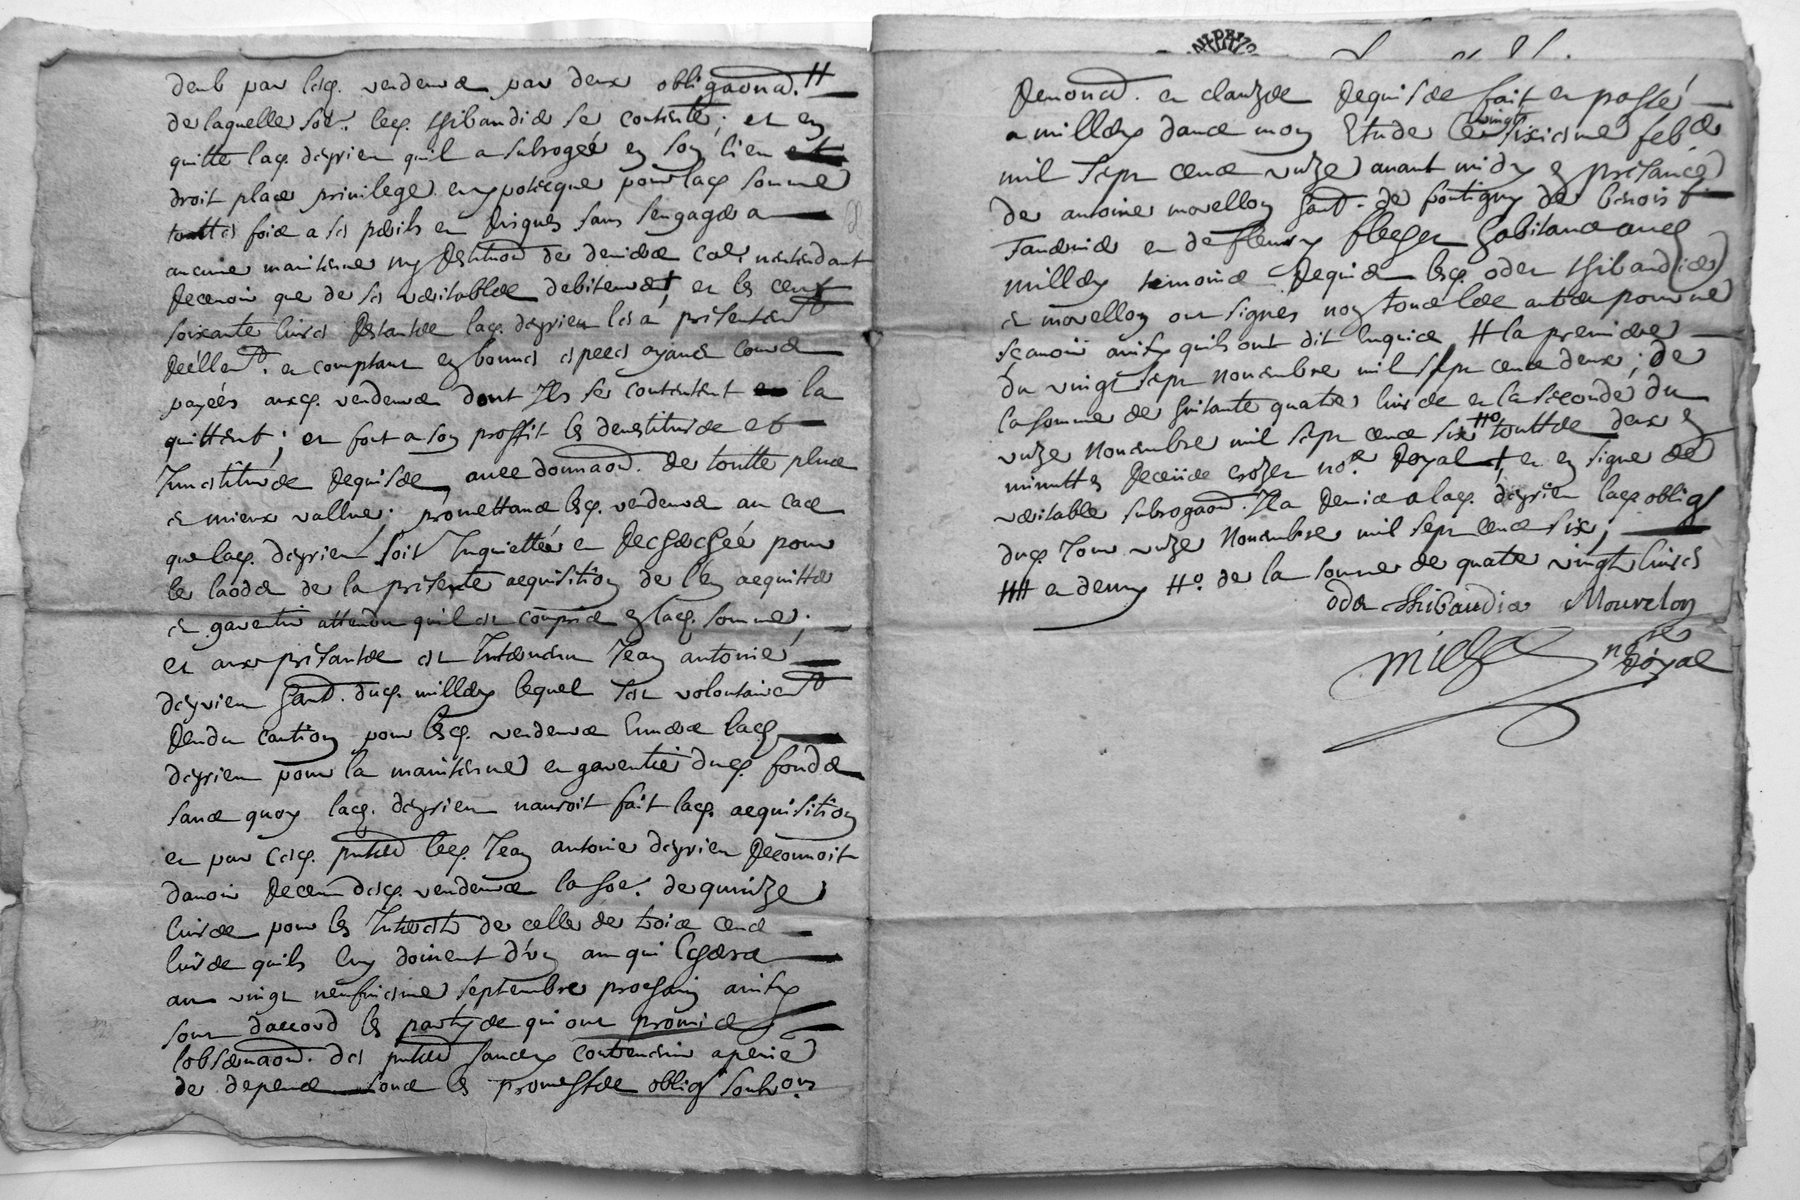 deub par lesq. vendeurs par deux obligaons. H
de laquelle soe. leq. thibaudier se contente; et en
quitte laq. deyrieu quil a subrogée en son lieu
droit place privilege en ypotecque pour laq somme
touttes fois a ses perils en risques sans sengager a
aucune maintenue ny restituon de deniers car nentendant
recevoir que de ses veritables debiteurs, et les cent
soixante livres restantes laq. deyrieu les a presentemt
reellemt. en comptant en bonnes especes ayant cours
payées auxq. vendeurs dont Ils se contentent la
quittent; en font a son proffit les devestitures et
Investitures requises avec donnaon. de toutte plus
et mieux vallue; promettans lesq. vendeurs au cas
que laq. deyrieu soit Inquiettée en recherchée pour
les laods de la presente acquisition de len acquitter
et garentir attendu quil est compris en laq. somme;
et aux presentes est Intervenu Jean antoine
deyrieu hant. duq. millery lequel sest volontairemt
rendu caution pour lesq. vendeurs Envers laq
deyrieu pour la maintenue en garentie duq. fonds
sans quoy laq. deyrieu nauroit fait laq. acquisition
en par cesq. pntes leq. Jean antoine deyrieu reconnoit
davoir receu desq. vendeurs la soe. de quinze
livres pour les Interests de celle de trois cens
livres quils luy doivent d'un an qui Echera
au vingt neufviesme septembre prochain ainsy
sont daccord les partyes qui ont promis
lobservaon. des pntes sans y contrevenir a peine
de depens sous les promesses obligs soubons.
Renons. en clauzes requises fait en passé
a millery dans mon Etude le vingt sixiesme feber
mil sept cens unze avant midy en presance
de antoine morellon hant. de pontigny de benoist
en de fleury habitans aud
millery temoins requis lesq. oden thibaudier
et morellon ont signes non tous les autres pour ne
sçavoir ainsy quils ont dit Enquis H la premiere
du vingt sept novembre mil sept cens deux; de
la somme de huitante quatre livres en la seconde du
unze novembre mil sept cens six Ho touttes deux en
minuttes receües crozer nore. Royal, en en signe de
veritable subrogaon. Il a remis a laq. deyrieu laq oblig
duq. Jour unze Novembre mil sept cens six;
HH en demy Ho. de la somme de quatre vingt livres
oden thibaudier Mourelon
nore
Royal